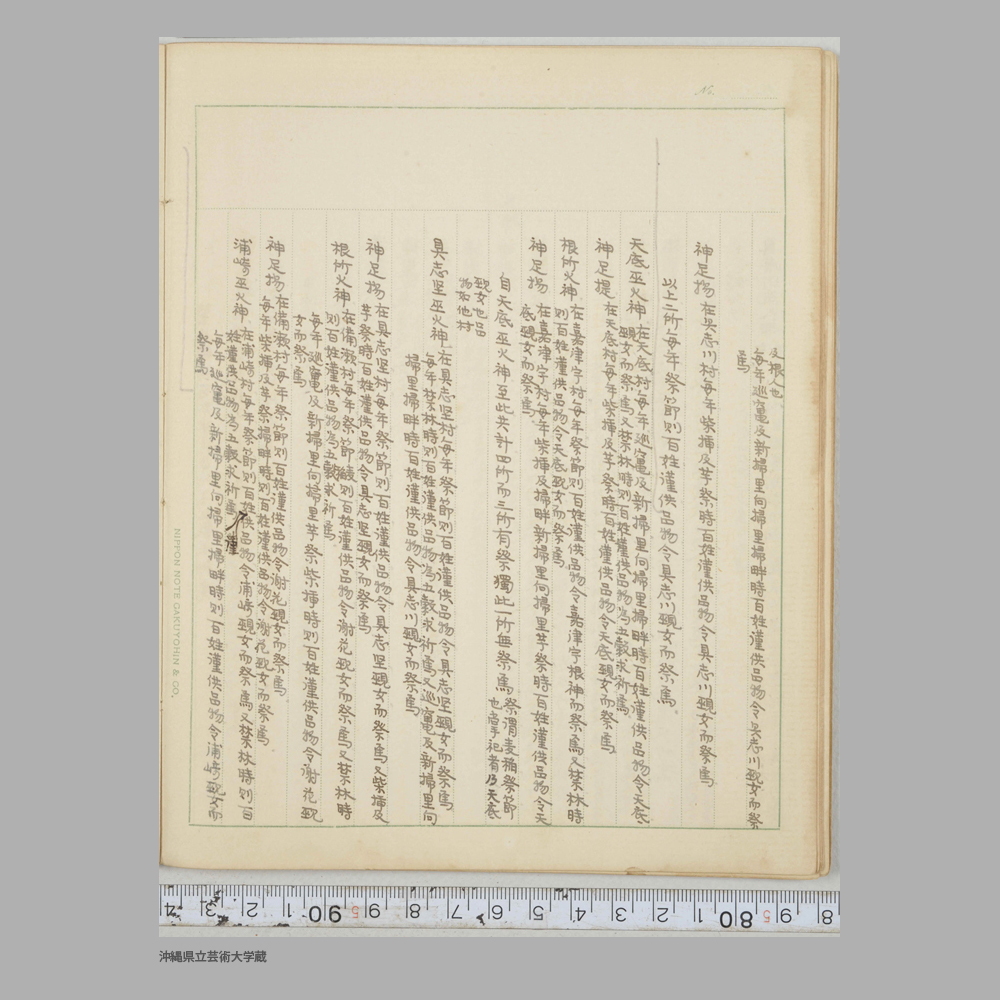 No.
及根人也
每年巡竃及新揚里向揚里掃畔時百姓謹供品物令具志川覡女而祭
焉
神足揚 在具志川村每年柴揷及芋祭時百姓謹供品物令具志川覡女而祭焉
以上二所每年祭節則百姓謹供品物令具志川覡女而祭焉
天底巫火神 在天底村每年巡竃及新揚里向揚里掃畔時百姓謹供品物令天底
覡女而祭焉又禁林時則百姓謹供品物為五穀求祈焉
神足提 在天底村每年柴揷及芋祭時百姓謹供品物令天底覡女而祭焉
根所火神 在嘉津宇村每年祭節則百姓謹供品物令嘉津宇根神而祭焉又禁林時
則百姓謹供品物令天底覡女而祭焉
神足揚 在嘉津宇村每年柴揷及掃畔新揚里向揚里芋祭時百姓謹供品物令天
底覡女而祭焉
自天底巫火神至此共計四所而三所有祭獨此一所無祭焉 祭謂麦稲祭節
也掌祀者乃天底
覡女也品
物如他村
具志堅巫火神 在具志堅村每年祭節則百姓謹供品物令具志堅覡女而祭焉
每年禁林時則百姓謹供品物為五穀求祈焉又巡竃及新揚里向
揚里掃畔時百姓謹供品物令具志川覡女而祭焉
神足揚 在具志堅村每年祭節則百姓謹供品物令具志堅覡女而祭焉又柴揷及
芋祭時百姓謹供品物令具志堅覡女而祭焉
根所火神 在備瀬村每年祭節則百姓謹供品物令謝花覡女而祭焉又禁林時
則百姓謹供品物為五穀求祈焉
每年巡竃及新揚里向揚里芋祭柴揷時則百姓謹供品物令謝花覡
女而祭焉
神足揚 在備瀬村每年祭節則百姓謹供品物令謝花覡女而祭焉
每年柴揷及芋祭掃畔時則百姓謹供品物令謝花覡女而祭焉
浦崎巫火神 在浦崎村每年祭節則百姓供品物令浦崎覡女而祭焉又禁林時則百
姓謹供品物為五穀求祈焉
謹
每年巡竃及新揚里向揚里掃畔時則百姓謹供品物令浦崎覡女而
祭焉
NIPPON NOTE GAKUYOHIN & CO.
4 3 2 1 90 9 8 7 6 5 4 3 2 1 80 9 8
沖縄県立芸術大学蔵